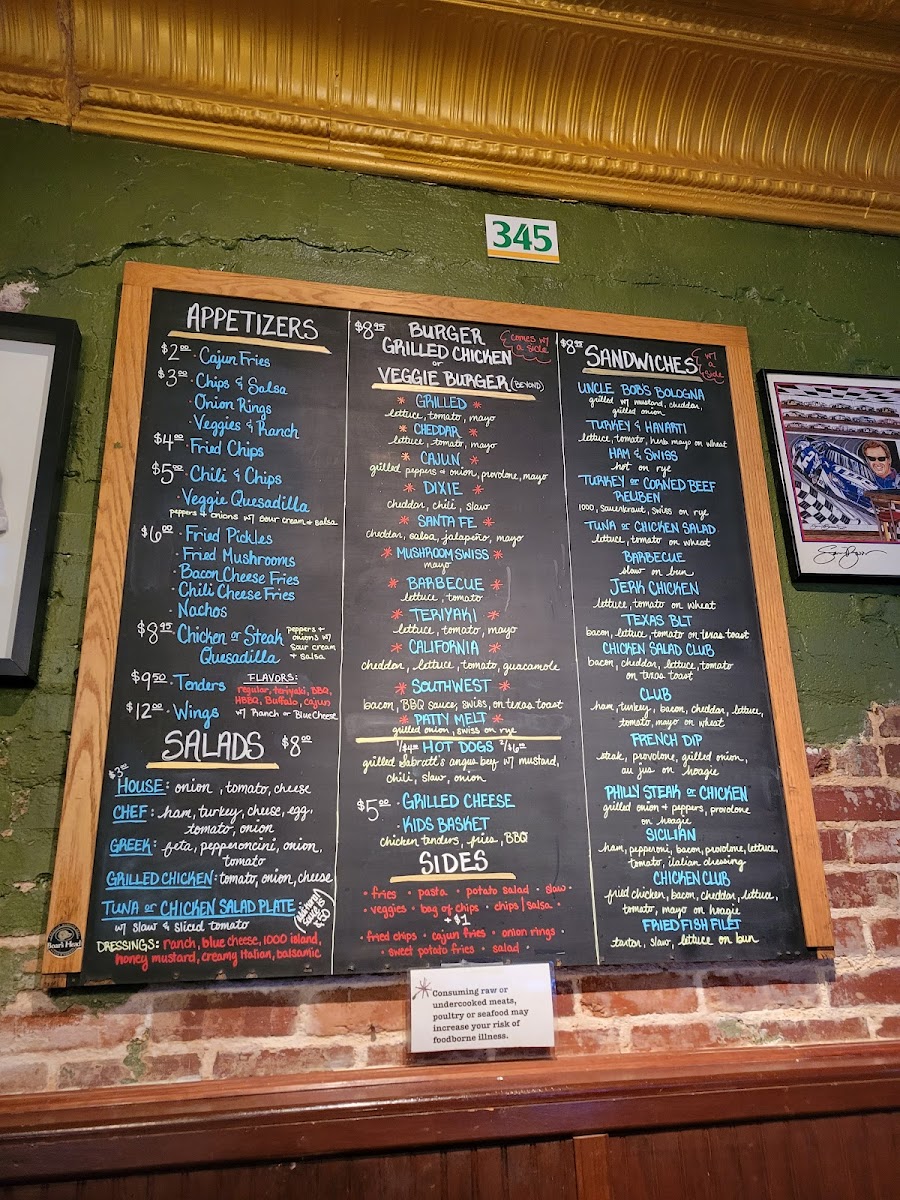 345
APPETIZERS
$2.00 · Cajun Fries
$3.00 · Chips & Salsa
· Onion Rings
· Veggies & Ranch
$4.00 · Fried Chips
$5.00 · Chili & Chips
· Veggie Quesadilla
peppers & onions w/ sour cream & salsa
$6.00 · Fried Pickles
· Fried Mushrooms
· Bacon Cheese Fries
· Chili Cheese Fries
· Nachos
$8.95 · Chicken or Steak
Quesadilla
peppers +
onions w/
sour cream
& salsa
$9.50 · Tenders
$12.00 · Wings
FLAVORS:
regular, teriyaki, BBQ,
HBBQ, Buffalo, Cajun
w/ Ranch or Blue Cheese
SALADS $8.00
$3.00
HOUSE: onion, tomato, cheese
CHEF: ham, turkey, cheese, egg,
tomato, onion
GREEK: feta, pepperoncini, onion,
tomato
GRILLED CHICKEN: tomato, onion, cheese
TUNA or CHICKEN SALAD PLATE
w/ slaw & sliced tomato
DRESSINGS: ranch, blue cheese, 1000 island,
honey mustard, creamy Italian, balsamic
Boar's Head
$8.95 BURGER
GRILLED CHICKEN
or
VEGGIE BURGER (BEYOND)
comes w/
a side
* GRILLED *
lettuce, tomato, mayo
* CHEDDAR *
lettuce, tomato, mayo
* CAJUN *
grilled peppers & onion, provolone, mayo
* DIXIE *
cheddar, chili, slaw
* SANTA FE *
cheddar, salsa, jalapeño, mayo
* MUSHROOM SWISS *
mayo
* BARBECUE *
lettuce, tomato
* TERIYAKI *
lettuce, tomato, mayo
* CALIFORNIA *
cheddar, lettuce, tomato, guacamole
* SOUTHWEST *
bacon, BBQ sauce, swiss, on texas toast
* PATTY MELT *
grilled onion, swiss on rye
1/$4.00 HOT DOGS 2/$6.00
grilled Sabrett's angus beef w/ mustard,
chili, slaw, onion
$5.00 · GRILLED CHEESE
· KIDS BASKET
chicken tenders, fries, BBQ
SIDES
· fries · pasta · potato salad · slaw ·
· veggies · bag of chips · chips/salsa ·
+$1
· fried chips · cajun fries · onion rings ·
· sweet potato fries · salad ·
$8.95 SANDWICHES
w/
a
side
UNCLE BOB'S BOLOGNA
grilled w/ mustard, cheddar,
grilled onion
TURKEY & HAVARTI
lettuce, tomato, herb mayo on wheat
HAM & SWISS
hot on rye
TURKEY or CORNED BEEF
REUBEN
1000, sauerkraut, swiss on rye
TUNA or CHICKEN SALAD
lettuce, tomato on wheat
BARBECUE
slaw on bun
JERK CHICKEN
lettuce, tomato on wheat
TEXAS BLT
bacon, lettuce, tomato on texas toast
CHICKEN SALAD CLUB
bacon, cheddar, lettuce, tomato
on texas toast
CLUB
ham, turkey, bacon, cheddar, lettuce,
tomato, mayo on wheat
FRENCH DIP
steak, provolone, grilled onion,
au jus on hoagie
PHILLY STEAK or CHICKEN
grilled onion + peppers, provolone
on hoagie
SICILIAN
ham, pepperoni, bacon, provolone, lettuce,
tomato, italian dressing
CHICKEN CLUB
fried chicken, bacon, cheddar, lettuce,
tomato, mayo on hoagie
FRIED FISH FILET
tartar, slaw, lettuce on bun
* Consuming raw or
undercooked meats,
poultry or seafood may
increase your risk of
foodborne illness.